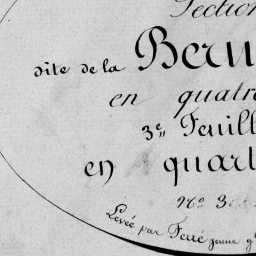 Section
dite de la Beru
en quatre
3e,, Feuill
en quart
No 3
Levée par Ferré jeune g